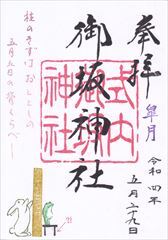 奉拝
皐月
令和四年
五月二十九日
式内
御坂神社
神社
柱のきずは おととしの
五月五日の 背くらべ〜